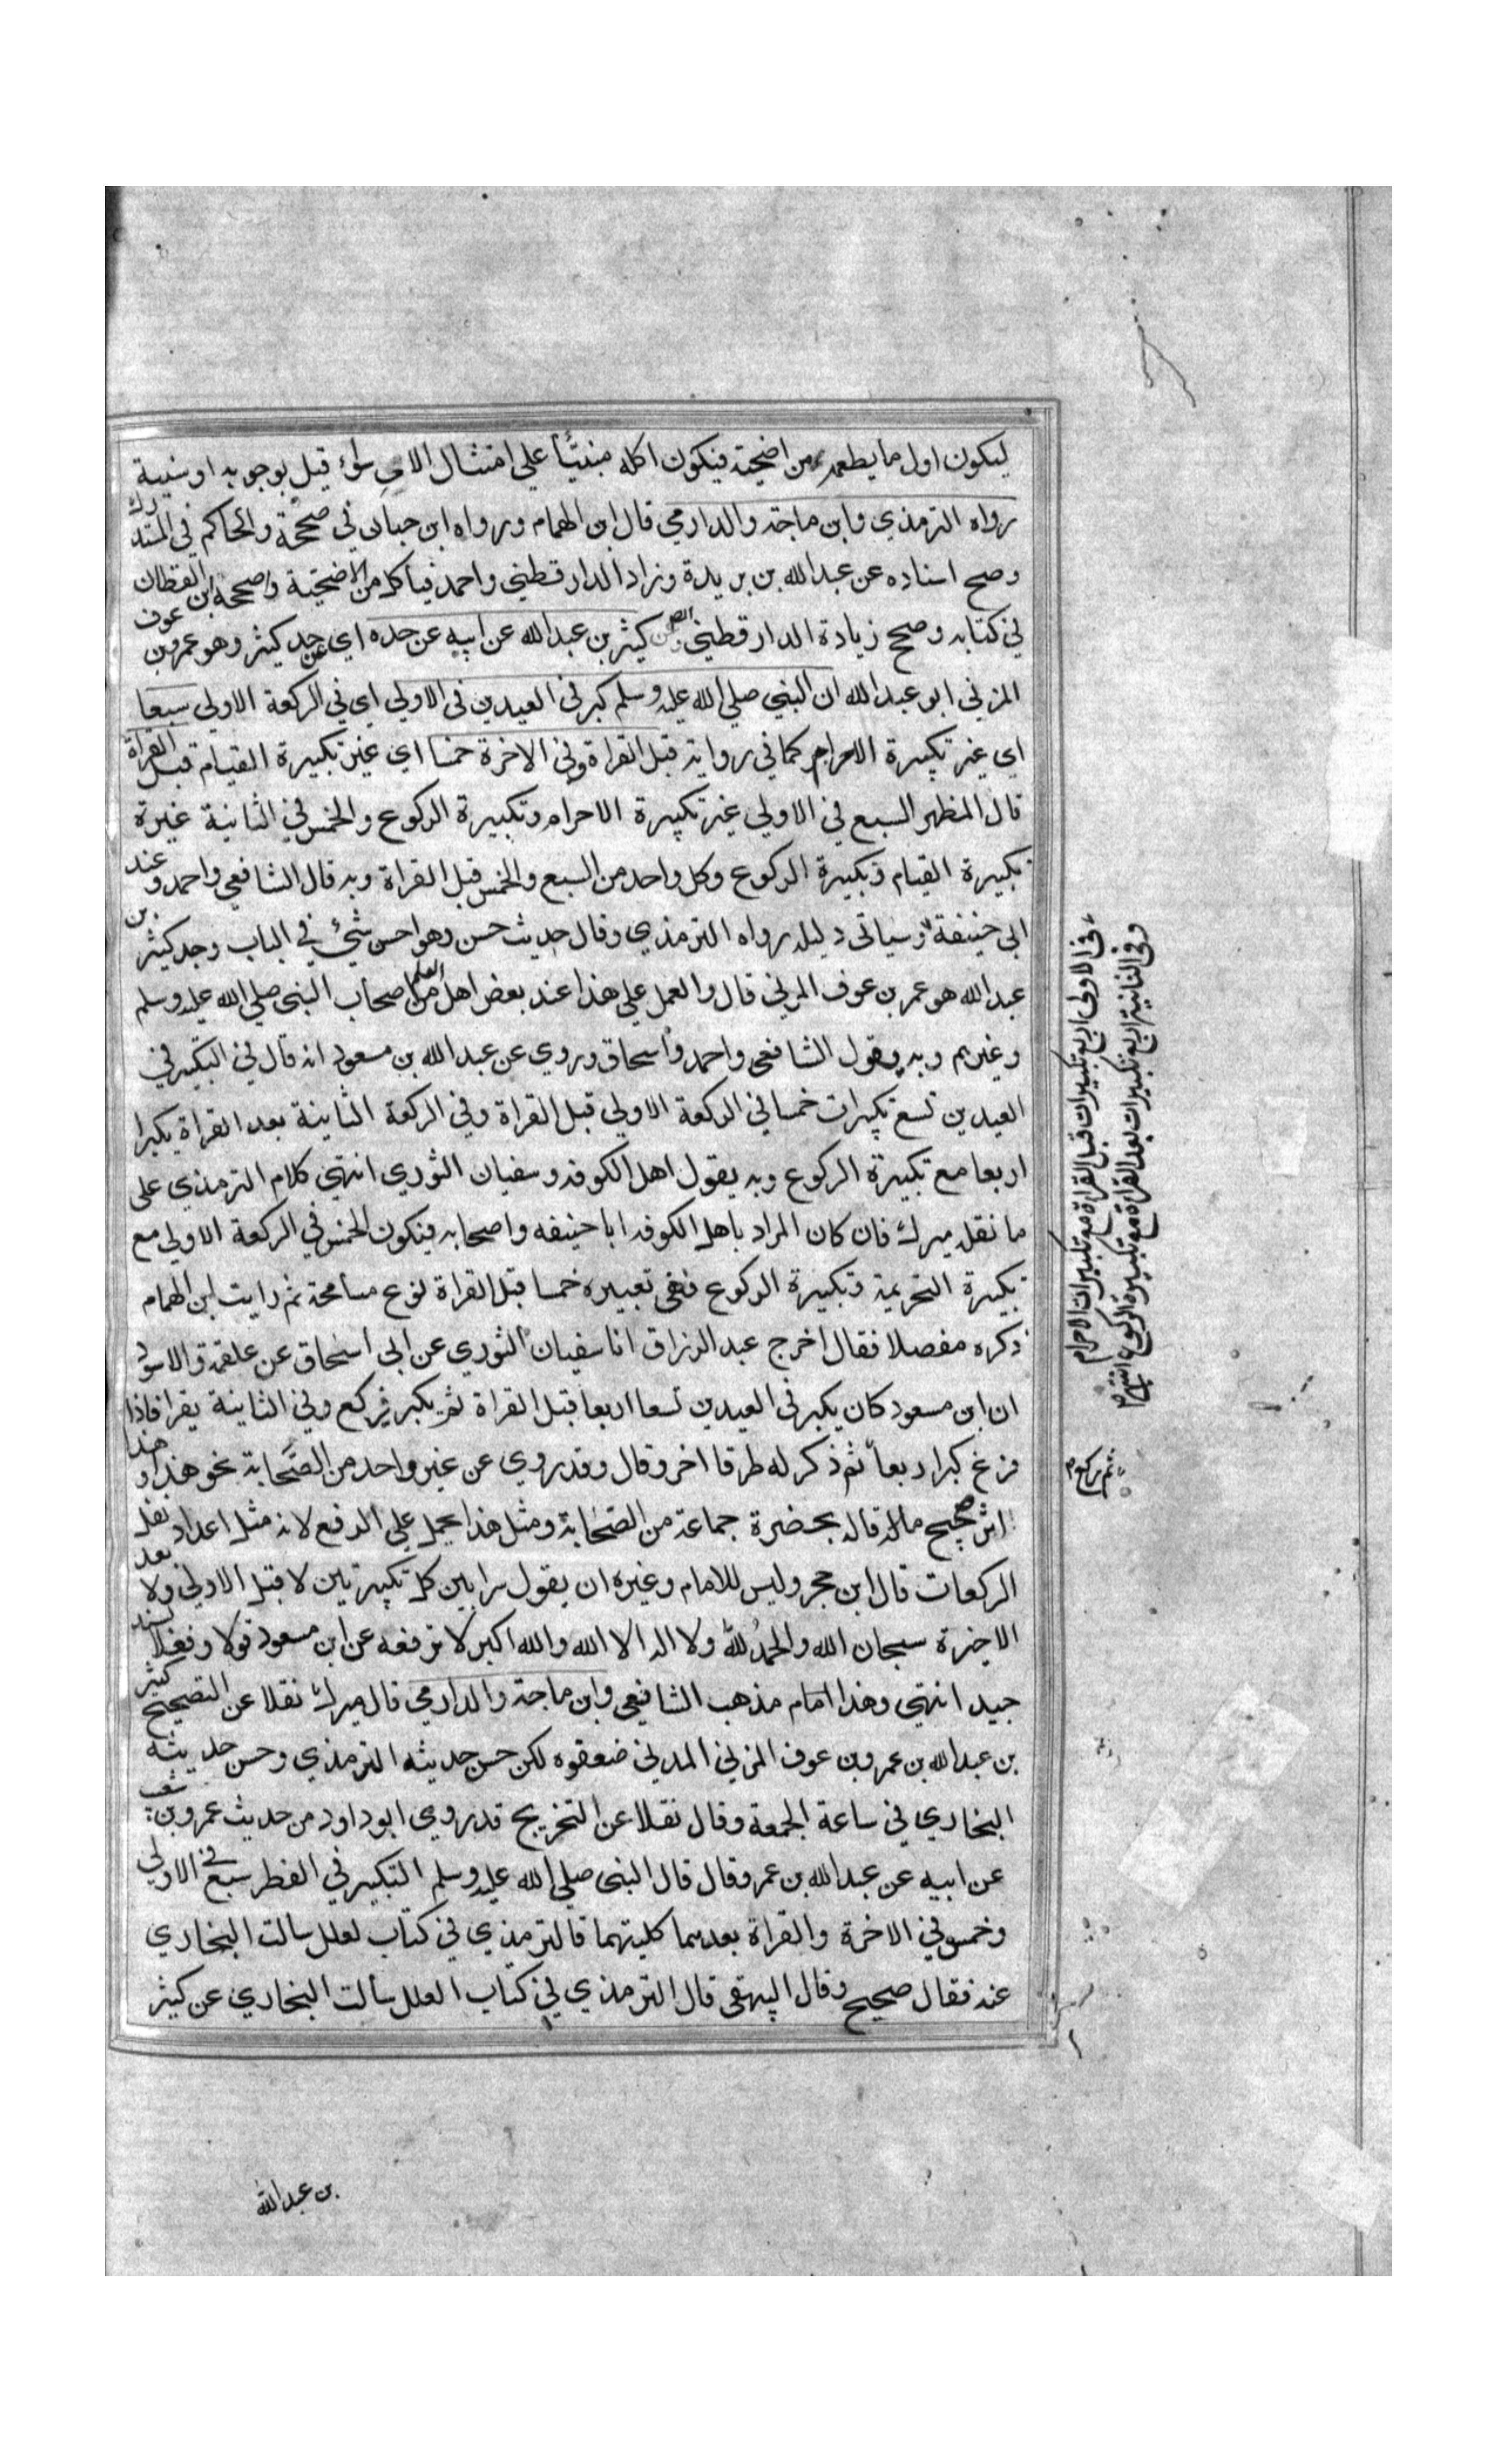 ليكون اول ما يطعمه من اضحية فيكون اكله مبنيّاً علي امتثال الامر سواء قيل بوجوبه او سنية
رواه الترمذي وابن ماجة والدارمي قال ابن الهمام ورواه ابن حبان في صحيحه والحاكم في المستدرك
وصح اسناده عن عبدالله بن بريدة وزاد الدارقطني واحمد فيأكل من الاضحية وصححه ابن القطان
في كتابه وصحح زيادة الدارقطني وعن كثير بن عبدالله عن ابيه عن جده اي عن جد كثير وهو عمرو بن عوف
المزني ابو عبدالله ان النبي صلي الله عليه وسلم كبر في العيدين في الاولي اي في الركعة الاولي سبعا
اي غير تكبيرة الاحرام كما في رواية قبل القراة وفي الاخرة خمسا اي غير تكبيرة القيام قبل القراة
قال المظهر السبع في الاولي غير تكبيرة الاحرام وتكبيرة الركوع والخمس في الثانية غيرة
تكبيرة القيام وتكبيرة الركوع وكل واحد من السبع والخمس قبل القراة وبه قال الشافعي واحمد وعند
ابي حنيفة وسياتي دليله رواه الترمذي وقال حديث حسن وهو احسن شئ في الباب وجد كثير بن
عبدالله هو عمر بن عوف المزني قال والعمل علي هذا عند بعض اهل العلم من اصحاب النبي صلي الله عليه وسلم
وغيرهم وبه يقول الشافعي واحمد واسحاق وروي عن عبدالله بن مسعود انه قال في التكبير في
العيدين تسع تكبيرات خمسا في الركعة الاولي قبل القراة وفي الركعة الثانية بعد القراة يكبر
اربعا مع تكبيرة الركوع وبه يقول اهل الكوفه وسفيان الثوري انتهي كلام الترمذي علي
ما نقله ميرك فان كان المراد باهل الكوفه ابا حنيفه واصحابه فيكون الخمس في الركعة الاولي مع
تكبيرة التحريمة وتكبيرة الركوع ففي تعبيره خمسا قبل القراة نوع مسامحة ثم رايت ابن الهمام
ذكره مفصلا فقال اخرج عبد الرزاق انا سفيان الثوري عن ابي اسحاق عن علقمة والاسود
ان ابن مسعود كان يكبر في العيدين تسعا اربعا قبل القراة ثم يكبر فيركع وفي الثانية يقرا فاذا
فرغ كبر اربعا ثم ذكر له طرقا اخر وقال وقد روي عن غير واحد من الصحابة نحو هذا وهذا
اثر صحيح قاله بحضرة جماعة من الصحابة ومثل هذا يحمل علي الرفع لانه مثل اعداد نقل
الركعات قال ابن حجر وليس للامام وغيره ان يقول سرا بين كل تكبيرتين لا قبل الاولي ولا بعد
الاخيرة سبحان الله والحمد لله ولا اله الا الله والله اكبر لا ترفعه عن ابن مسعود قولا وفعلا بسند
جيد انتهي وهذا امام مذهب الشافعي وابن ماجة والدارمي قال ميرك نقلا عن التصحيح كثير
بن عبدالله بن عمرو بن عوف المزني المدني ضعفوه لكن حسن حديثه الترمذي وحسن حديثه
البخاري في ساعة الجمعة وقال نقلا عن التخريج قد روي ابو داود من حديث عمرو بن شعيب
عن ابيه عن عبدالله بن عمرو قال قال النبي صلي الله عليه وسلم التكبير في الفطر سبع في الاولي
وخمس في الاخرة والقراة بعدهما كلتيهما قالترمذي في كتاب لعلل سالت البخاري
عنه فقال صحيح وقال البيهقي قال الترمذي في كتاب العلل سألت البخاري عن كثير
في الاولي اربع تكبيرات قبل القراة مع تكبيرات الاحرام
وفي الثانية اربع تكبيرات بعد القراة مع تكبيرة الركوع انتهي
ثم يركع
بن عبدالله